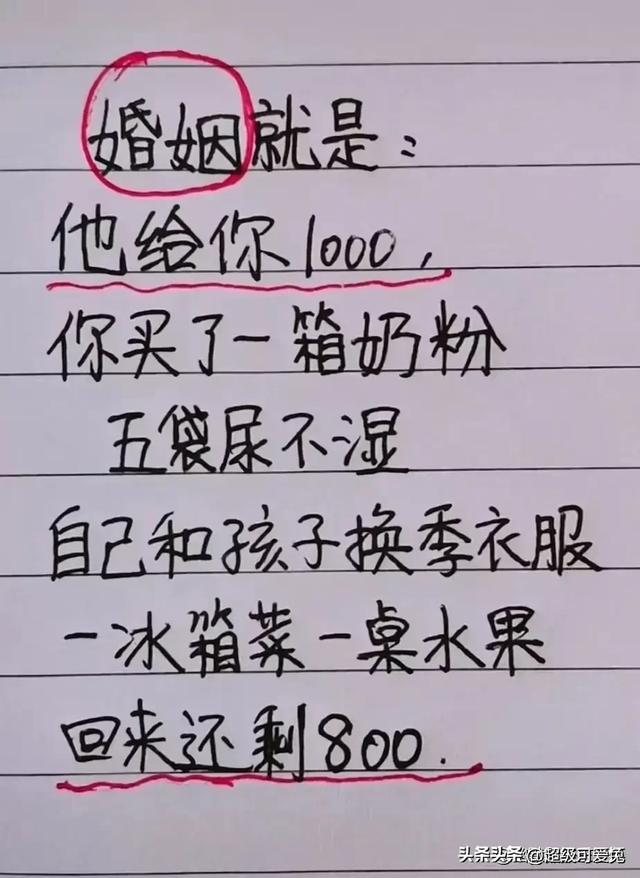 婚姻就是：
他给你1000，
你买了一箱奶粉
五袋尿不湿
自己和孩子换季衣服
一冰箱菜一桌水果
回来还剩800.
头条 @超级可爱兔